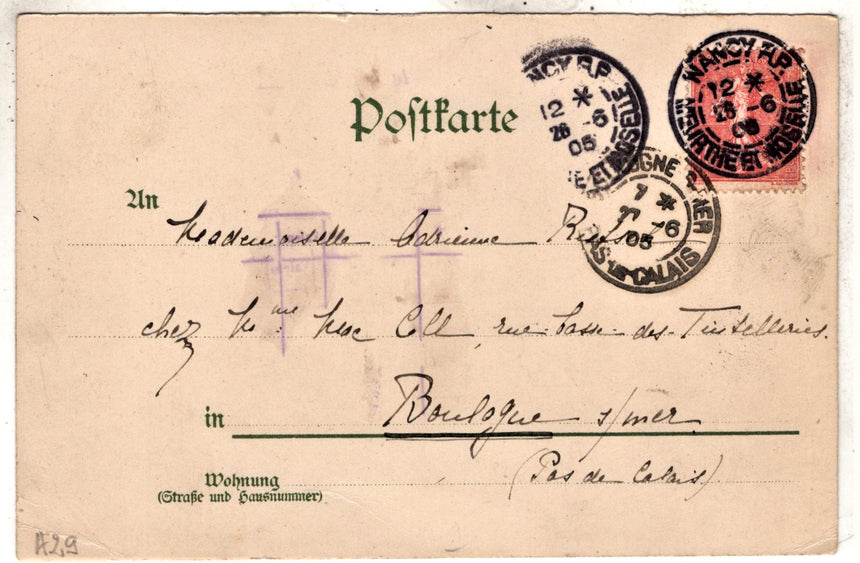 NANCY R.P.
12 *
26 -6
05
MEURTHE ET MOSELLE
NCY R.P.
12 *
26 -6
05
E ET MOSELLE
Postkarte
OGNE S MER
7 *
-6
05
PAS DE CALAIS
An
Mademoiselle Adrienne
chez Mme Mac Coll, rue basse des Tintelleries.
in Boulogne s/mer
(Pas de Calais)
Wohnung
(Straße und Hausnummer)
A2,9